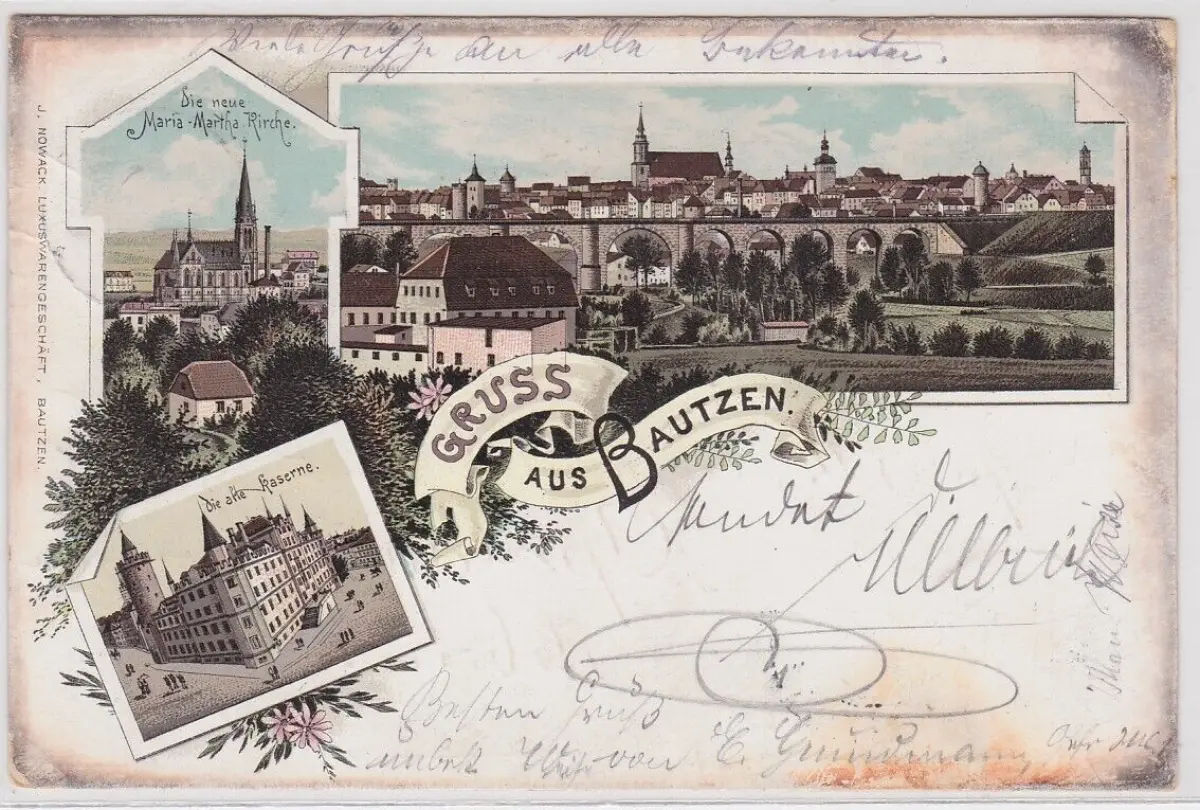 Viele Grüße an alle Bekannten.
Die neue
Maria-Martha Kirche.
J. NOWACK, LUXUSWARENGESCHÄFT, BAUTZEN.
GRUSS
AUS BAUTZEN.
Die alte Kaserne.
sendet
Besten Gruß
von E. Grundmann